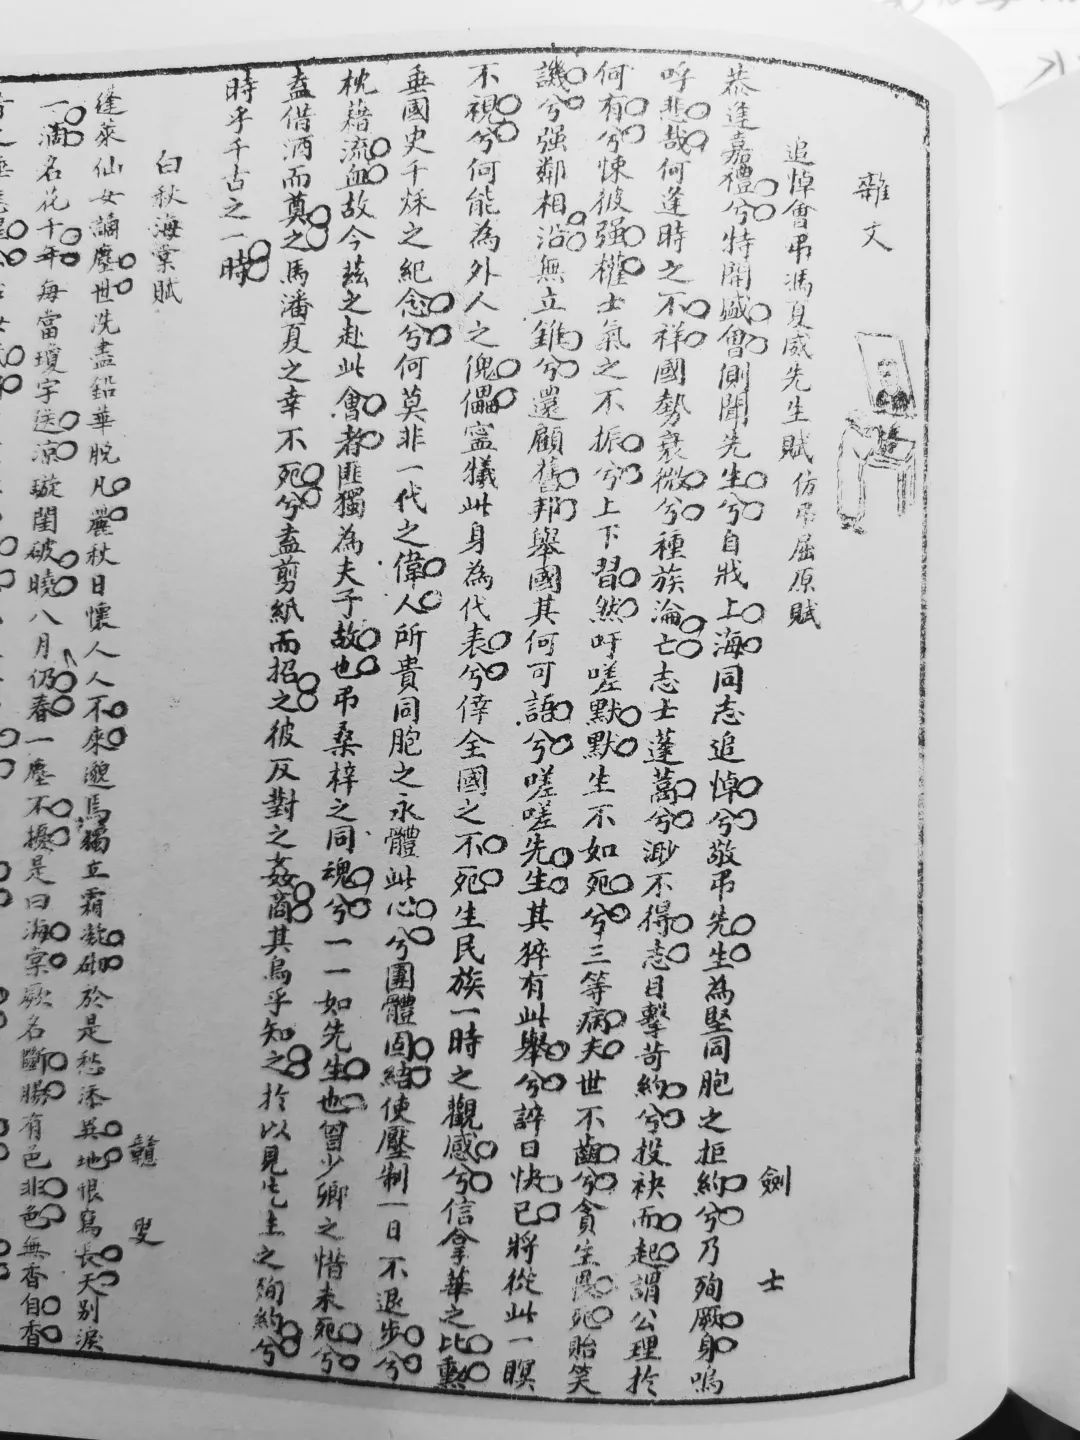 雜文
追悼會弔馮夏威先生賦仿弔屈原賦
劍士
恭逢嘉禮兮特開盛會側聞先生兮自戕上海同志追悼兮敬弔先生為堅同胞之拒約兮乃殉厥身嗚
呼悲哉何逢時之不祥國勢衰微兮種族淪亡志士蓬蒿兮渺不得志目擊苛約兮投袂而起謂公理於
何有兮悚彼强權士氣之不振兮上下習然吁嗟默默生不如死兮三等病夫世不齒兮貪生畏死貽笑
譏兮强鄰相沿無立錐兮還顧舊邦舉國其何可語兮嗟嗟先生其猝有此舉兮誶曰快已將從此一瞑
不視兮何能為外人之傀儡寍犧此身為代表兮倖全國之不死生民族一時之觀感兮信拿華之比勳
垂國史千秌之紀念兮何莫非一代之偉人所貴同胞之永體此心兮團體固結使壓制一日不退步兮
枕藉流血故今茲之赴此會者匪獨為夫子故也弔桑梓之同魂兮一一如先生也曾少卿之惜未死兮
盍借酒而奠之馬潘夏之幸不死兮盍剪紙而招之彼反對之姦商其烏乎知之於以見先生之殉約兮
時乎千古之一時
白秋海棠賦
贛叟
蓬萊仙女謫塵世洗盡鉛華脫凡麗秋日懷人人不來邈焉獨立霜凝砌於是愁添異地恨寫長天別淚
一滴名花十年每當瓊宇送涼璇閨破曉八月仍春一塵不擾是曰海棠厥名斷腸有色非色無香自香